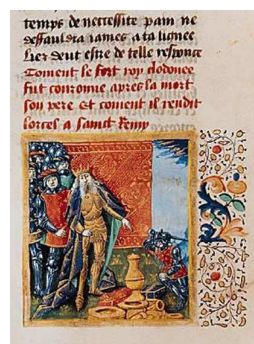 temps de neccessite pain ne
deffauldra iames a ta lignee
Lier deut estre de telle responce
Coment le fort roy clodouee
fut couronne apres la mort
son pere Et coment il rendit
lorcel a sainct Remy